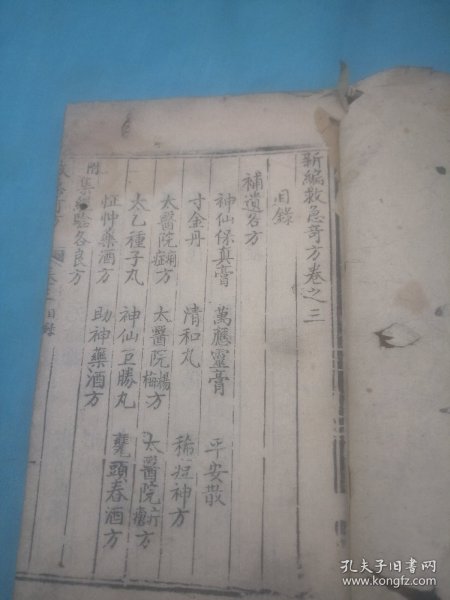 新編救急奇方卷之三
目錄
補遺各方
神仙保真膏 萬應靈膏 平安散
寸金丹 清和丸 稀痘神方
太醫院方 太醫院楊梅方 太醫院方
太乙種子丸 神仙巨勝丸
怔忡藥酒方 助神藥酒方 甕頭春酒方
附集驗各良方
目錄
孔夫子旧书网
www.kongfz.com